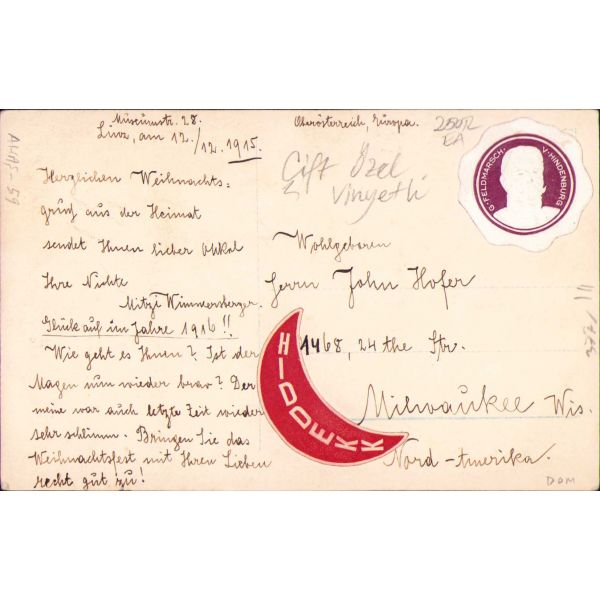 Museumstr. 28.
Linz, am 12./12. 1915.
Oberösterreich, Europa.
Herzlichen Weihnachts=
gruß aus der Heimat
sendet Ihnen lieber Onkel
Ihre Nichte
Mitzi Wimmersberger.
Glück auf im Jahre 1916!!
Wie geht es Ihnen? Ist der
Magen nun wieder brav? Der
meine war auch letzte Zeit wieder
sehr schlimm. Bringen Sie das
Weihnachtsfest mit Ihren Lieben
recht gut zu!
Çift Özel
Vinyetli
G. FELDMARSCH. V. HINDENBURG
Wohlgeboren
Herrn John Hofer
1468, 24 the Str.
Milwaukee Wis.
Nord-Amerika.
HIDDEKK
AHAŞ-59
DOM